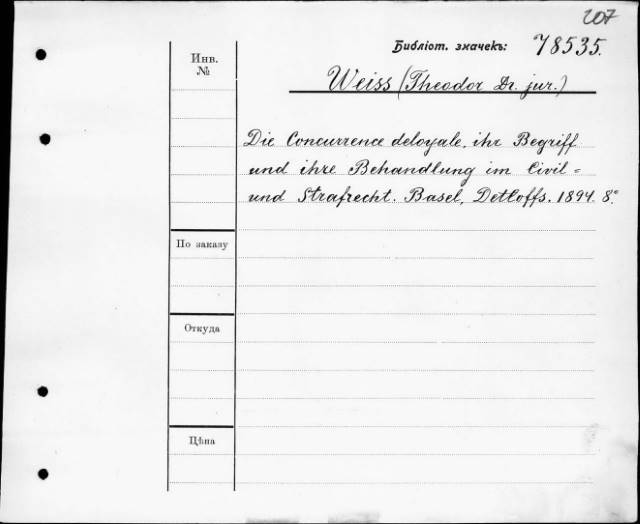 207
Библіот. значекъ: 78535.
Инв.
№
Weiss (Theodor Dr. jur.)
Die Concurrence deloyale, ihr Begriff
und ihre Behandlung im Civil=
und Strafrecht. Basel, Detloffs. 1894. 8°.
По заказу
Откуда
Цѣна